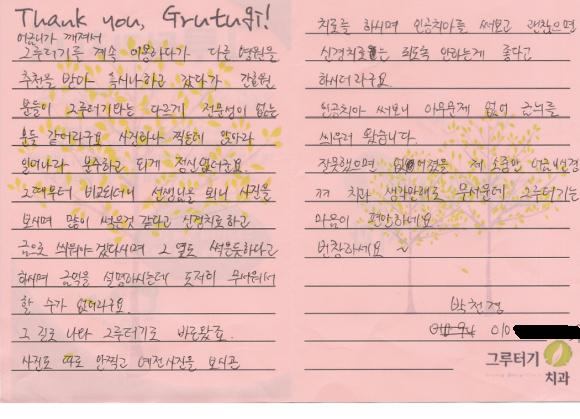 Thank you, Grutugi!
어금니가 깨져서
그루터기를 계속 이용하다가 다른 병원을
추천을 받아 혹시나하고 갔다가 간호원
분들이 그루터기와는 다르게 전문성이 없는
분들 같더라구요 사진하나 찍는데 앉아라
일어나라 분수하고 되게 정신없더군요
그때부터 비교되더니 선생님을 뵈니 사진을
보시며 많이 썩은것 같다고 신경치료하고
금으로 씌워야 겠다시며 그 옆도 썩은듯하다고
하시며 금액을 설명하시는데 도저히 무서워서
할 수가 없더라구요.
그 길로 나와 그루터기로 바로왔죠.
사진도 따로 안찍고 예전사진을 보시곤
치료를 하시며 인공치아를 써보고 괜찮으면
신경치료는 되도록 안하는게 좋다고
하시더라구요
인공치아 써보니 아무문제 없어 금니를
씌우러 왔습니다
잘못했으면 없어졌을 제 소중한 어금니신경
ㄲㄲ 치과 생각만해도 무서운데 그루터기는
마음이 편안하네요
번창하세요 ~
박천정
010
그루터기
치과